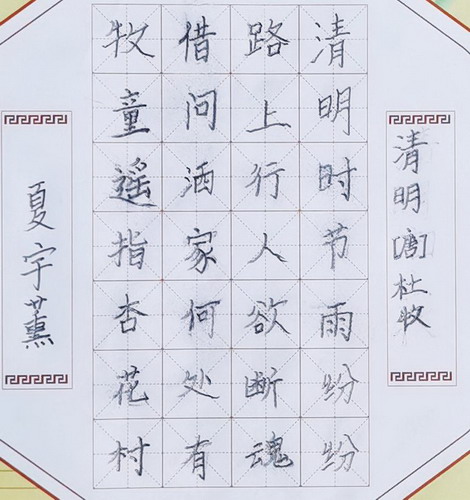 清明[唐]杜牧
清明时节雨纷纷
路上行人欲断魂
借问酒家何处有
牧童遥指杏花村
夏宇薰